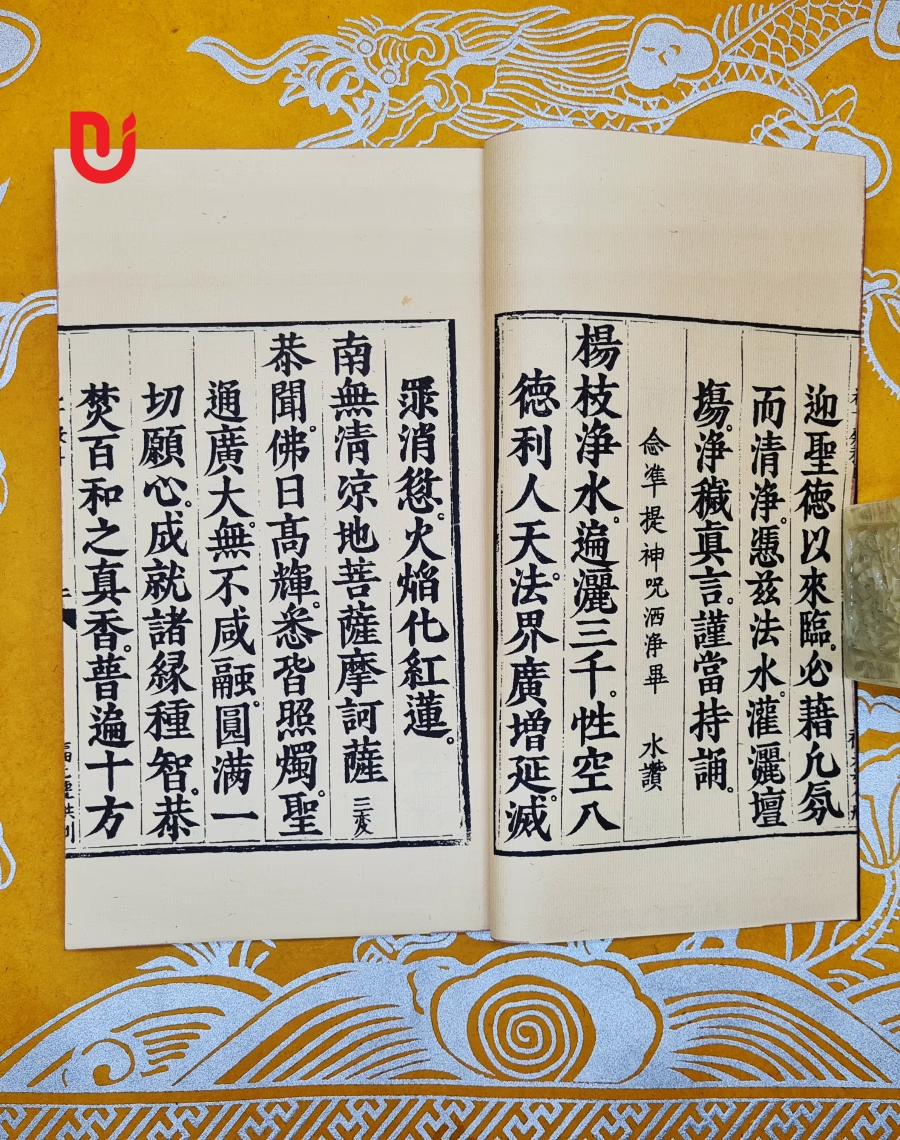 迎聖德以來臨。必藉凢氛
而清淨。憑兹法水。灌灑壇
塲。淨穢真言。謹當持誦。
念準提神呪洒淨畢 水讚
楊枝淨水。遍灑三千。性空八
德利人天。法界廣増延。滅
罪消愆。火焰化紅蓮。
南無清凉地菩薩摩訶薩 三変
恭聞。佛日高輝。悉皆照燭。聖
通廣大。無不咸融。圓满一
切願心。成就諸縁種智。恭
焚百和之真香。普遍十方